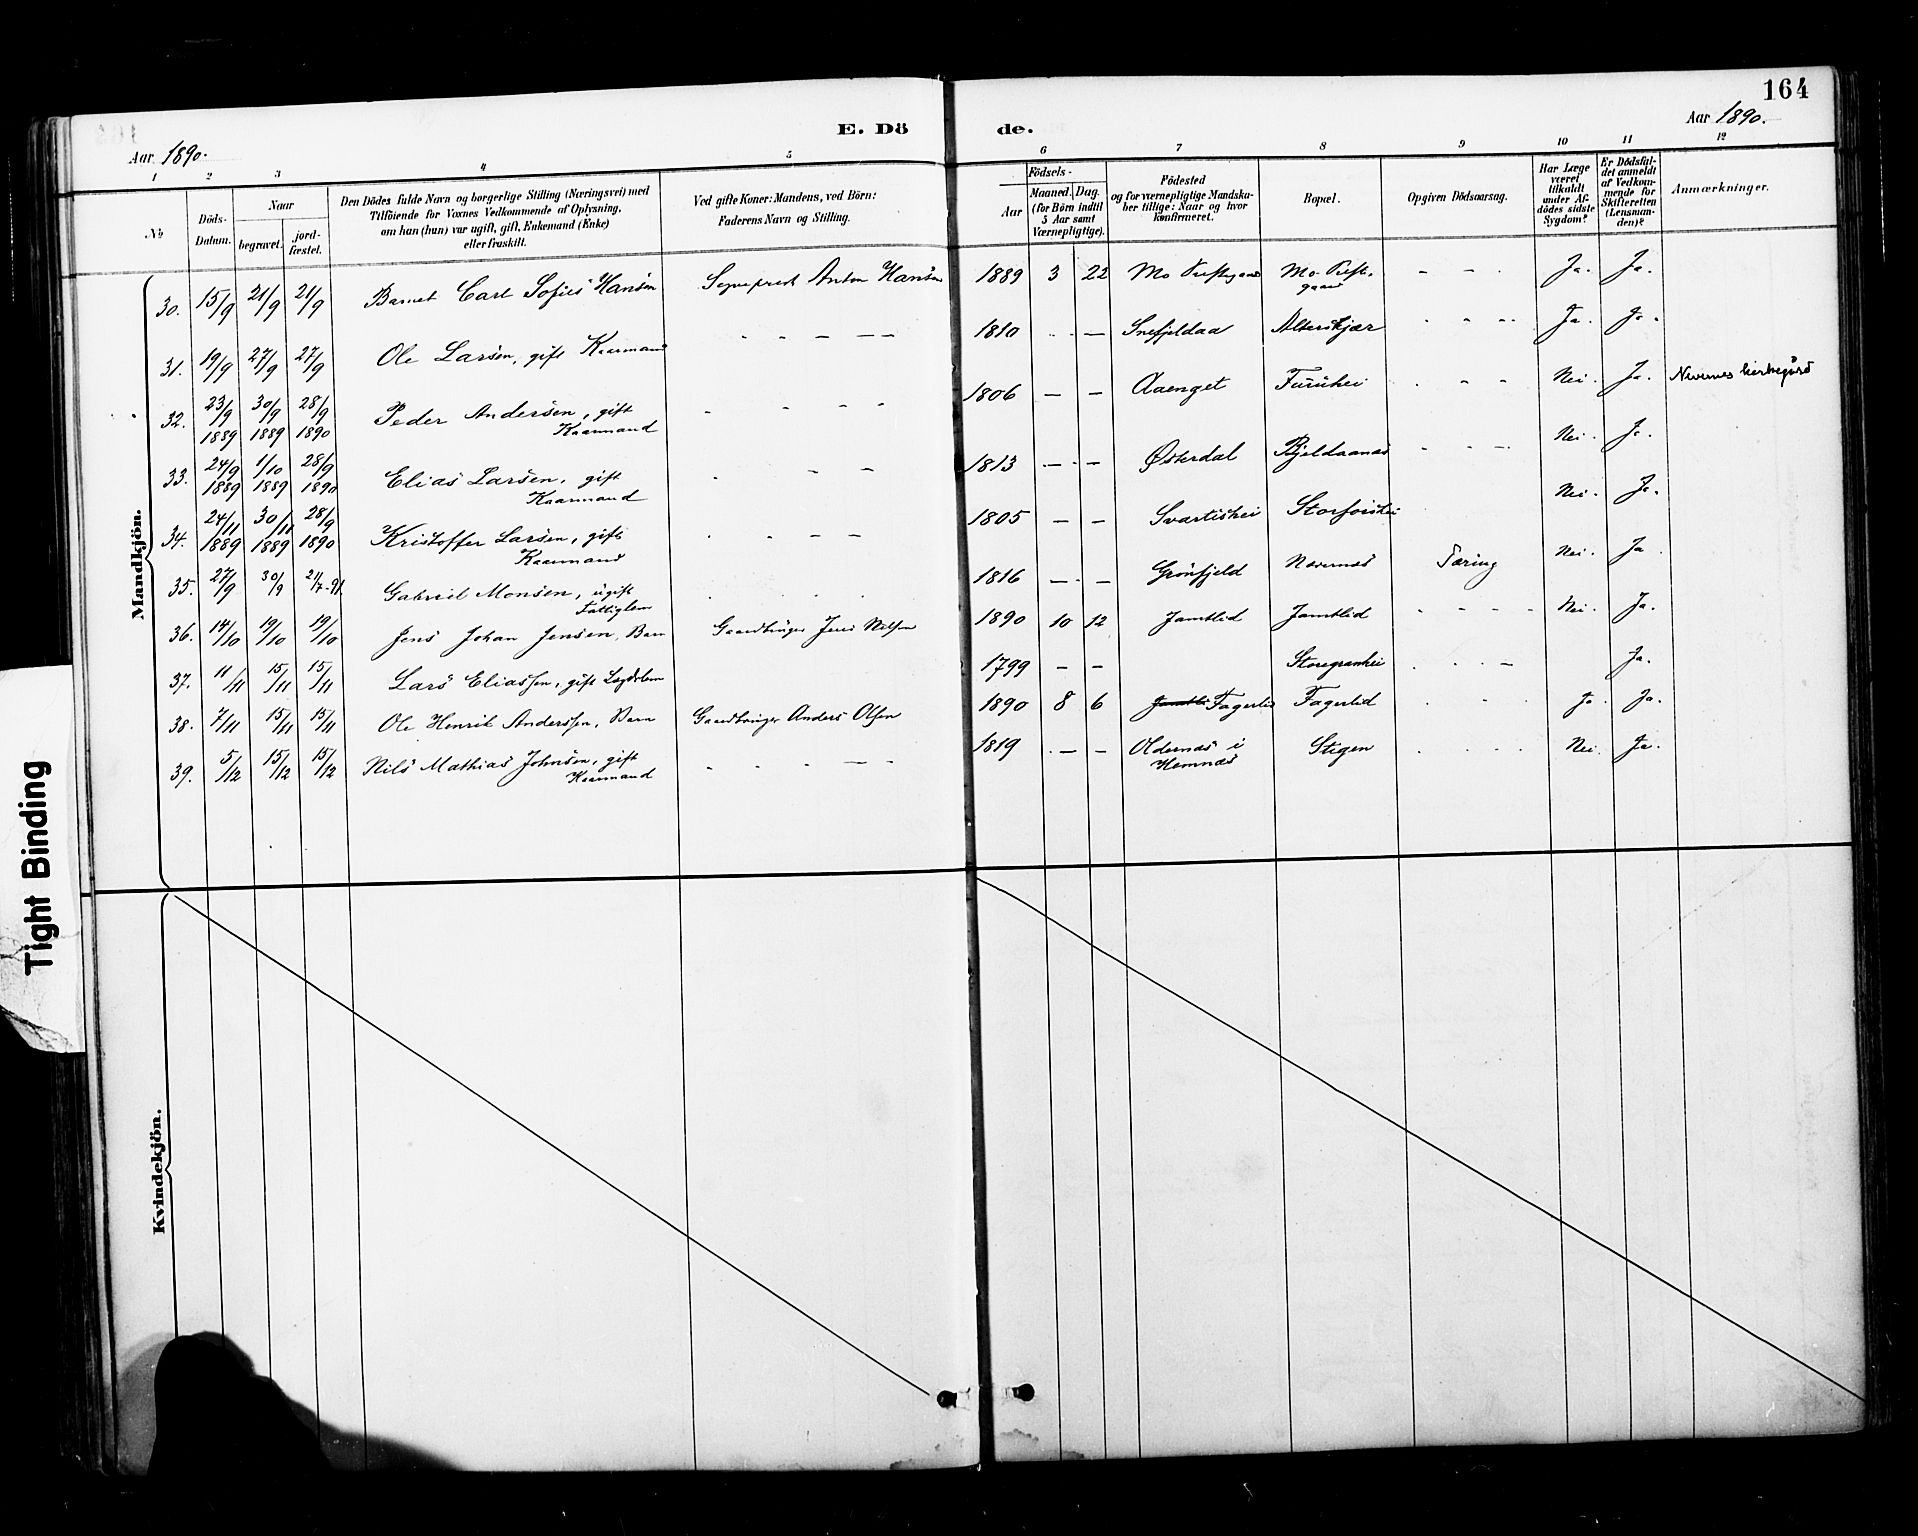 164
E. Döde.
Aar 1890.
Aar 1890.
1 2 3 4 5 6 7 8 9 10 11 12
No
Döds-Datum.
Naar
begravet.
jord-fæstet.
Den Dödes fulde Navn og borgerlige Stilling (Næringsvei) med
Tilföiende for Voxnes Vedkommende af Oplysning,
om han (hun) var ugift, gift, Enkemand (Enke)
eller fraskilt.
Ved gifte Koner: Mandens, ved Börn:
Faderens Navn og Stilling.
Födsels-
Aar
Maaned. Dag.
(for Börn indtil
5 Aar samt
Værnepligtige).
Födested
og for værnepligtige Mandska-
ber tillige: Naar og hvor
konfirmeret.
Bopæl.
Opgiven Dödsaarsag.
Har Læge
været
tilkaldt
under Af-
dödes sidste
Sygdom?
Er Dödsfal-
det anmeldt
af Vedkom-
mende for
Skifteretten
(Lensman-
den)?
Anmærkninger.
Mandkjön.
30. 15/9 21/9 21/9 Barnet Carl Sofus Hansen Sogneprest Anton Hansen 1889 3 22 Mo Prestegaard Mo Prest-gaard - - - Ja. Ja.
31. 19/9 27/9 27/9 Ole Larsen, gift Kaarmand - - - - - 1810 - - Snefjeldaa Alterskjær - - - Ja. Ja.
32. 23/9 1889 30/9 1889 28/9 1890 Peder Andersen, gift Kaarmand - - - - 1806 - - Aaenget Furuhei - - - Nei. Ja. Nevernes kirkegård
33. 24/9 1889 1/10 1889 28/9 1890 Elias Larsen, gift Kaarmand - - - 1813 - - Østerdal Bjeldaanæs - - - Nei. Ja.
34. 24/11 1889 30/11 1889 28/9 1890 Kristoffer Larsen, gift Kaarmand - - - - 1805 - - Svartishei Storforshei Nei. Ja.
35. 27/9 30/9 2/7-91 Gabriel Monsen, ugift Fattiglem - - - 1816 - - Grönfjeld Nævernæs Tæring Nei. Ja
36. 14/10 19/10 19/10 Jens Johan Jensen, Barn Gaardbruger Jens Nilsen 1890 10 12 Jamtlid Jamtlid - - - - Nei. Ja.
37. 11/11 15/11 15/11 Lars Eliassen, gift Lægdslem 1799 - - Storegranhei - - - - Ja.
38. 7/11 15/11 15/11 Ole Henrik Anderssen, Barn Gaardbruger Anders Olsen 1890 8 6 Jamtli Fagerlid Fagerlid - - - Ja. Ja.
39. 5/12 15/12 15/12 Nils Mathias Johnsen, gift Kaarmand - - - - - 1819 - - Oldernæs i Hemnæs Stigen - - - - Nei. Ja.
Kvindekjön.
Tight Binding